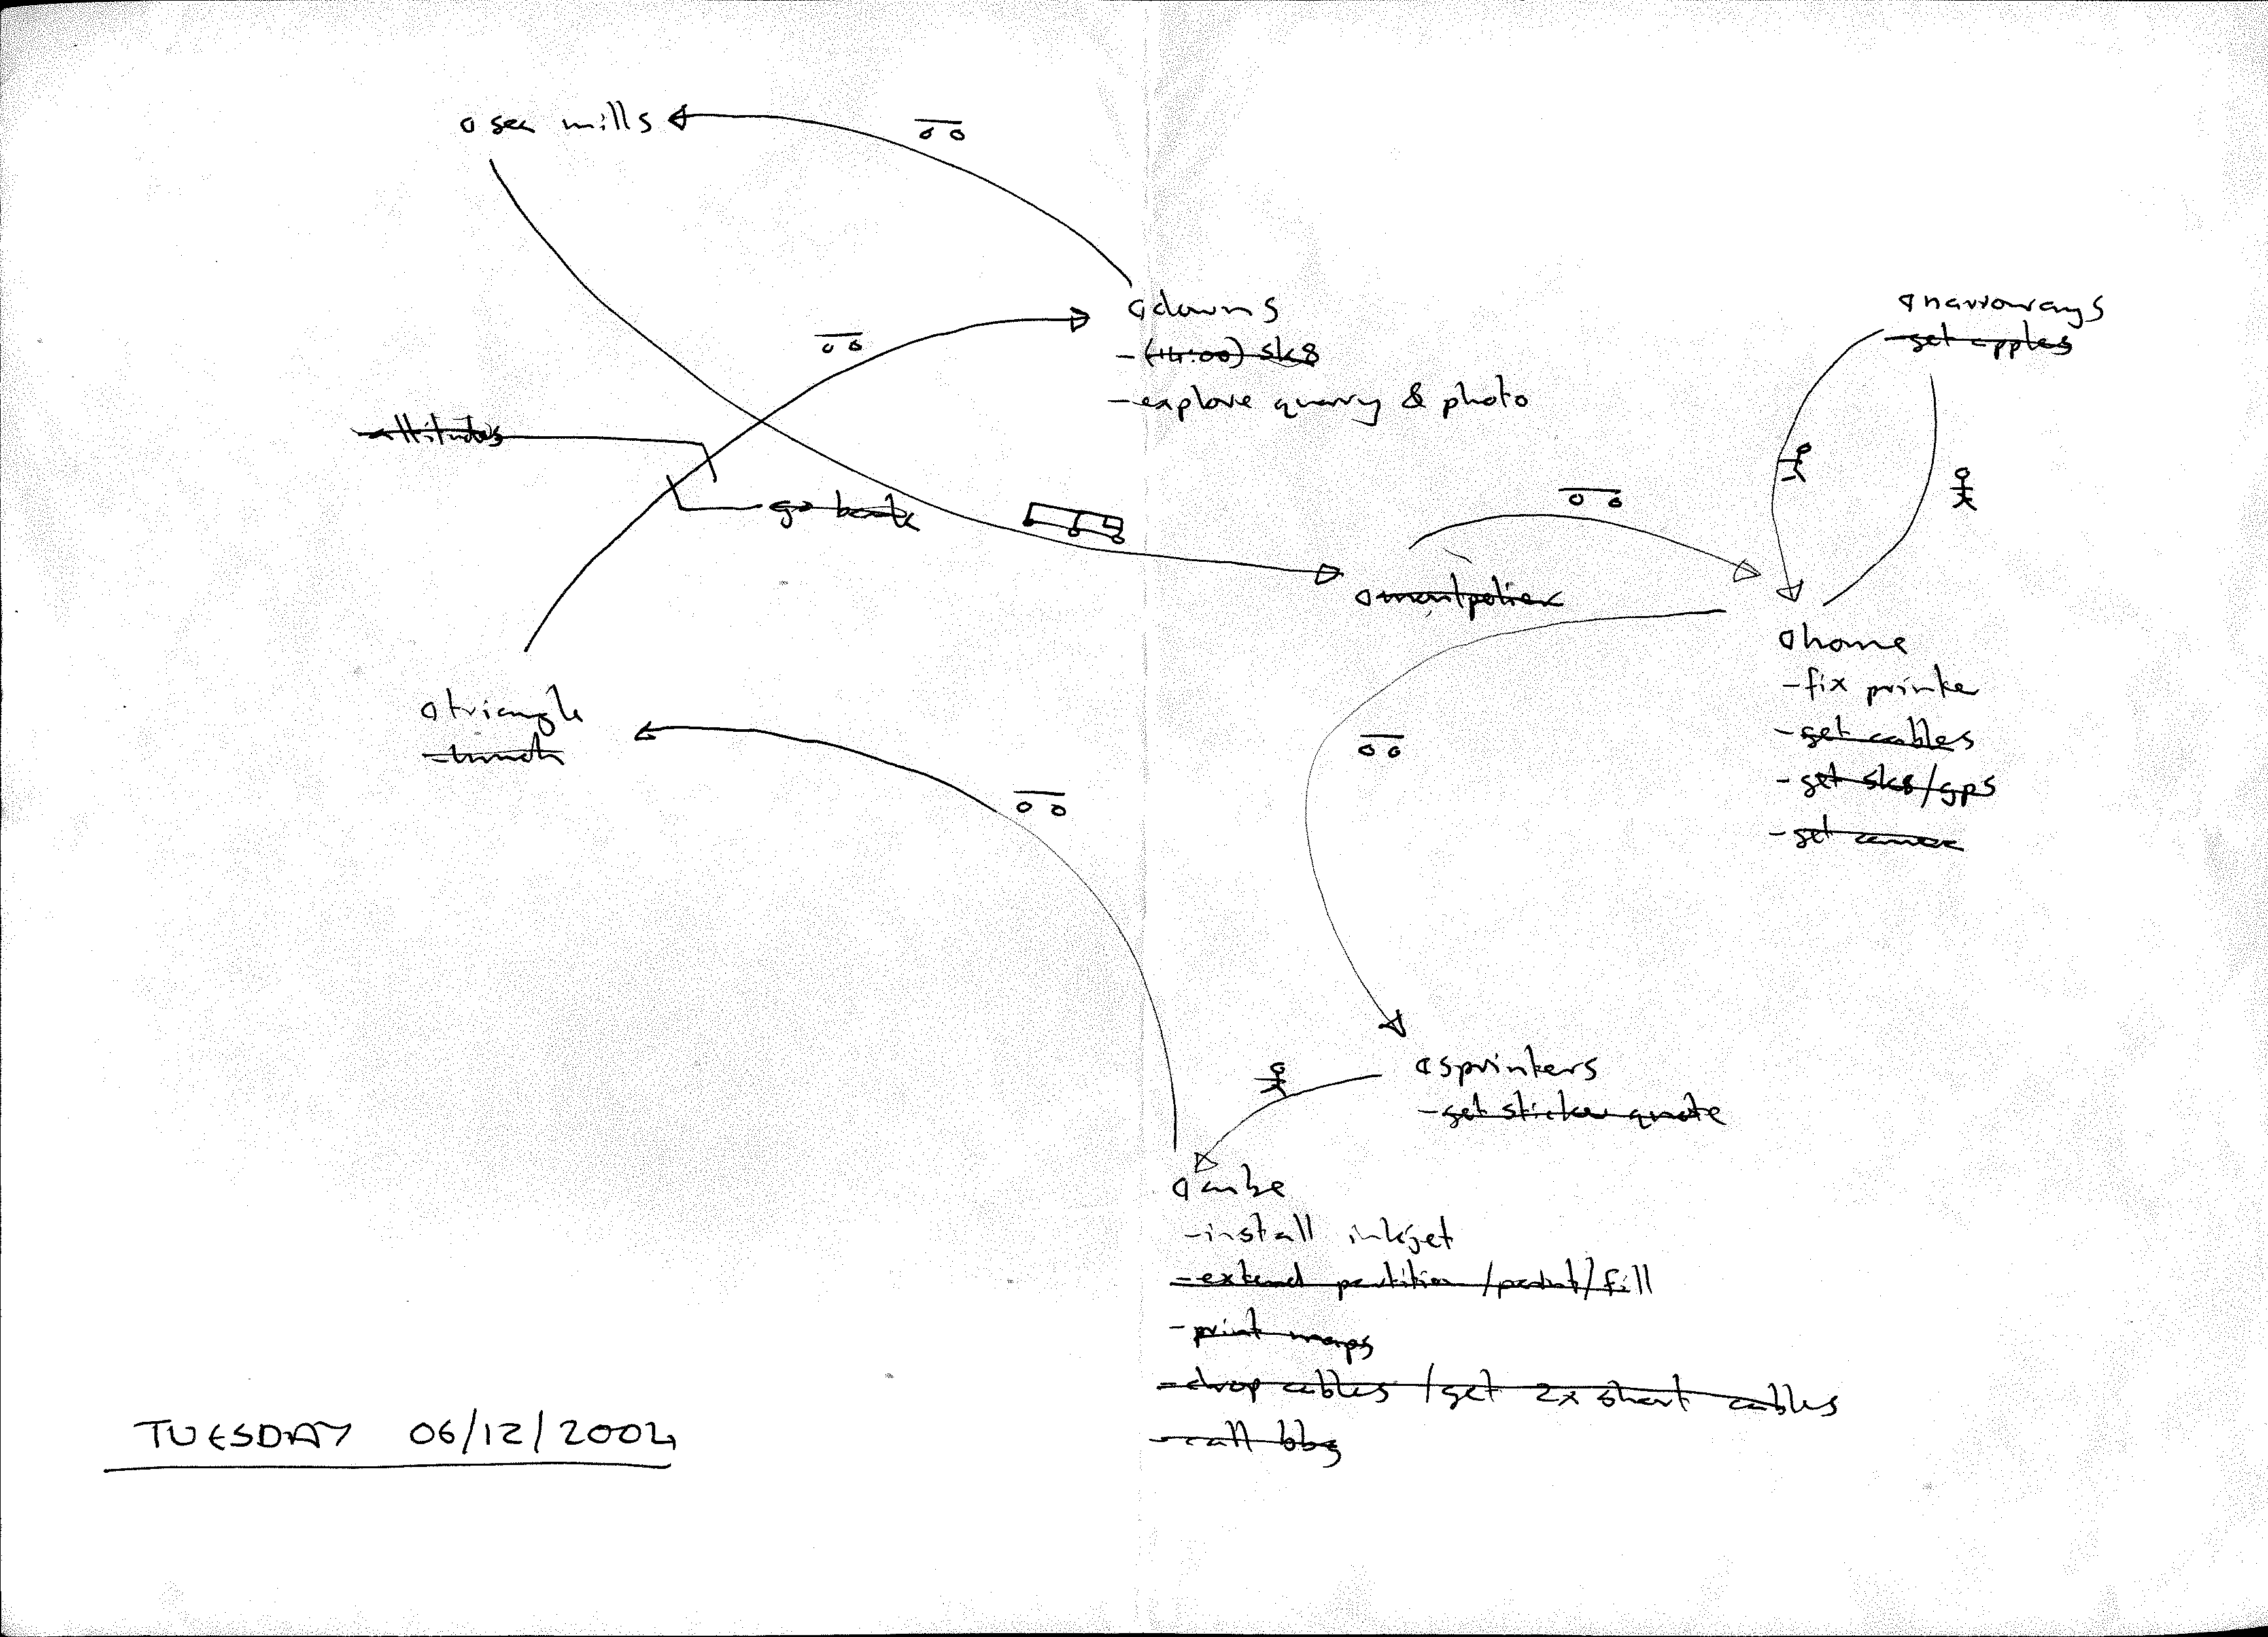 sea mills
downs
-(14:00) sk8
-explore quarry & photo
narroways
-get apples
attitudes
go bank
montpelier
home
-fix printer
-get cables
-get sk8/gps
triangle
-lunch
sprinters
-get sticker quote
cube
-install inkjet
-extend partition/paint/fill
-print maps
-drop cables/get 2x short cables
-call bbg
TUESDAY 06/12/2002